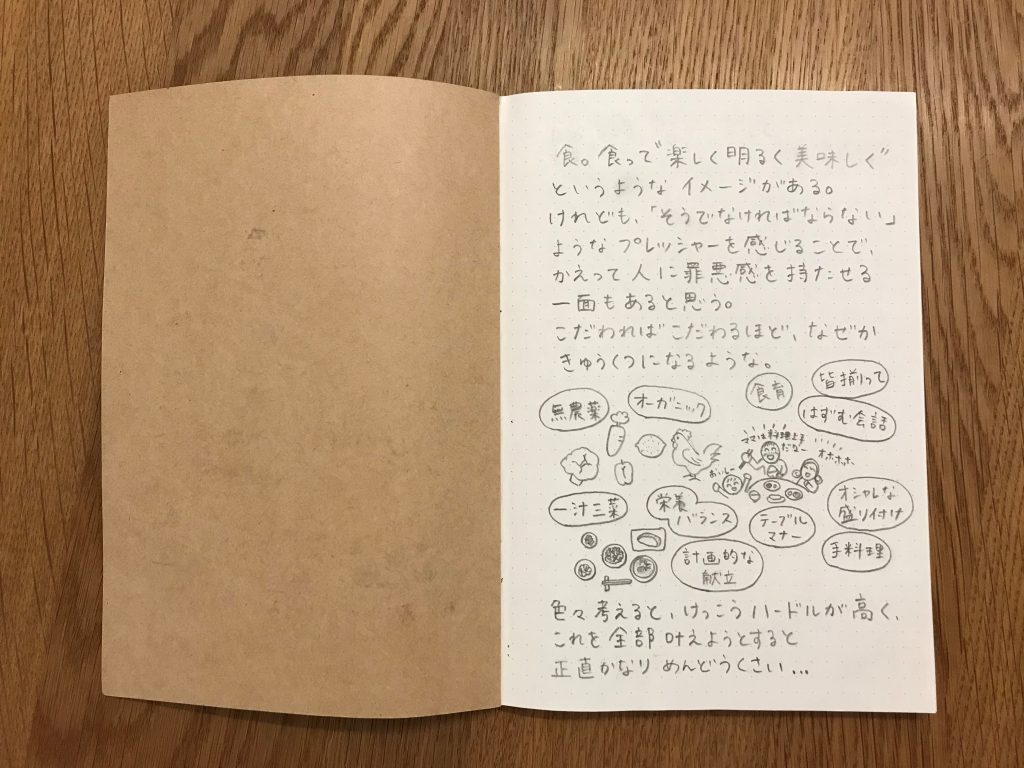 食。食って“楽しく明るく美味しく”
というようなイメージがある。
けれども、「そうでなければならない」
ようなプレッシャーを感じることで、
かえって人に罪悪感を持たせる
一面もあると思う。
こだわればこだわるほど、なぜか
きゅうくつになるような。
無農薬
オーガニック
食育
皆揃って
はずむ会話
ママは料理上手
だなー
オホホホ、
おいしー
一汁三菜
栄養
バランス
テーブル
マナー
オシャレな
盛り付け
計画的な
献立
手料理
色々考えると、けっこうハードルが高く、
これを全部叶えようとすると
正直かなりめんどうくさい...